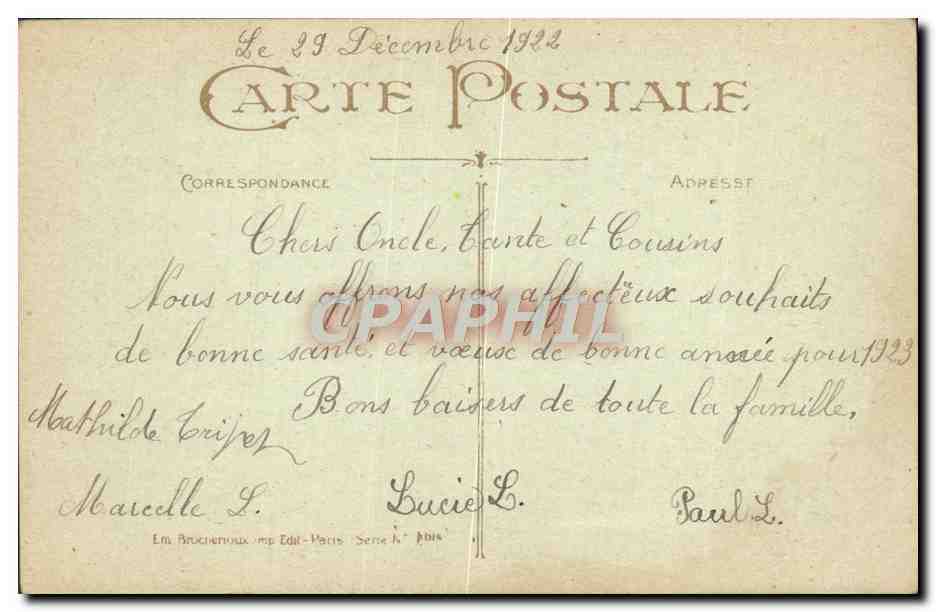 Le 29 Décembre 1922
CARTE POSTALE
CORRESPONDANCE
ADRESSE
Chers Oncle, Tante et Cousins
Nous vous offrons nos affectëux souhaits
de bonne santé, et vœux de bonne année pour 1923
Bons baisers de toute la famille,
Mathilde Tripet
Marcelle L.
Lucie L.
Paul L.
Em. Brocherioux Imp. Edit-Paris Serie N°
CPAPHIL